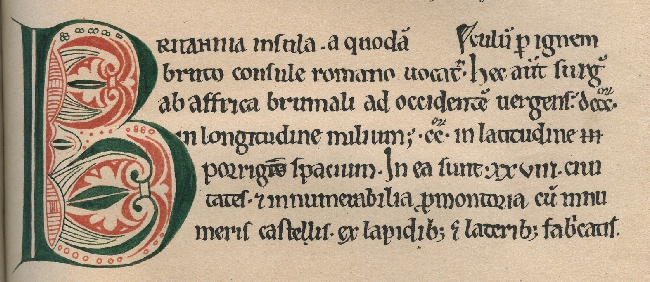 BRITANNIA insula · a quodā ꝯſculū ꝑ ignem
bruto conſule romano uocat᷑· hec aūt ſurg̃
ab affrica brumali ad occidentē uergenſ· dccc·
in longitudine milium; ·cc· in latitudine m
porrigit᷑ ſpacium. In ea ſunt ·xxviii· ciui
tateſ· ⁊ innumerabilia ꝓmontoria cū innu
meriſ caſtelliſ· ex lapidib; ⁊ laterib; fab̓catiſ.